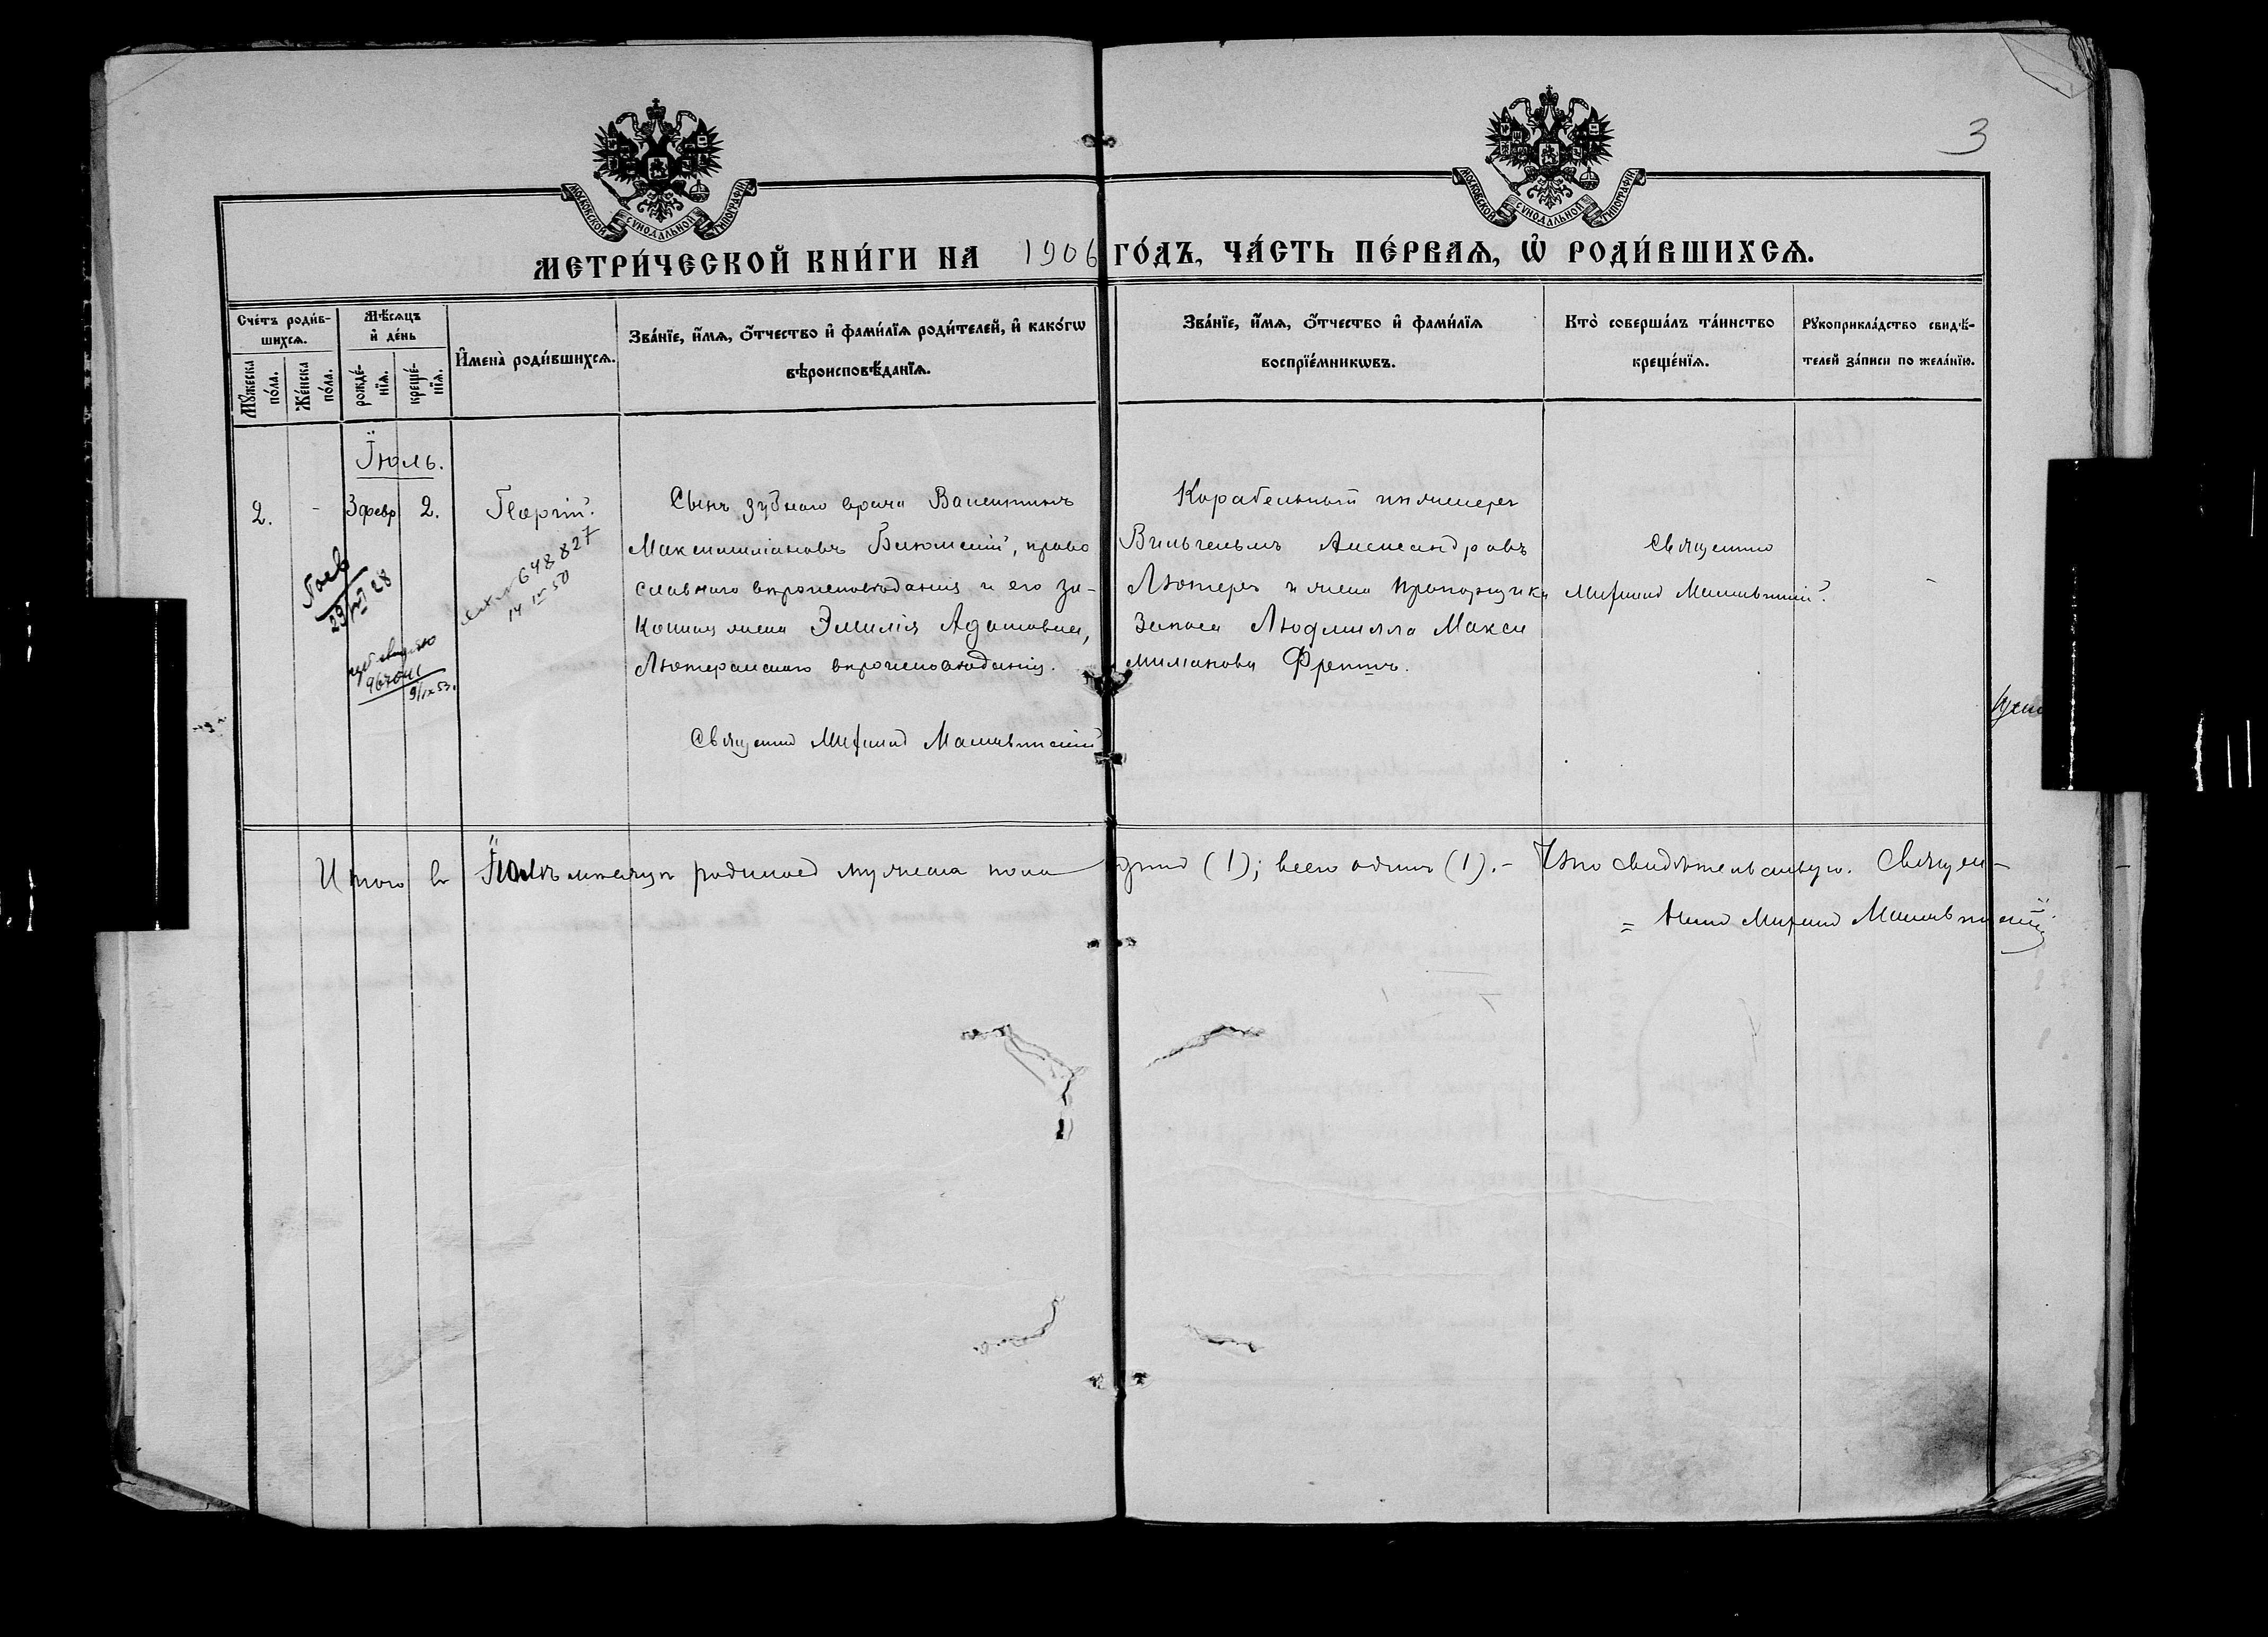 3
МОСКОВСКОЙ СѴНОДАЛЬНОЙ ТИПОГРАФІИ
МОСКОВСКОЙ СѴНОДАЛЬНОЙ ТИПОГРАФІИ
МЕТРИ́ЧЕСКОЙ КНИ́ГИ НА 1906 ГО́ДЪ, ЧА́СТЬ ПЕ́РВАѦ, Ѡ҆ РОДИ́ВШИХСѦ.
Сче́тъ роди́в-
шихсѧ.
Мꙋ́жеска по́ла.
Же́нска по́ла.
Мѣ́сѧцъ
и҆ де́нь
рожде́-
нїѧ.
креще́-
нїѧ.
И҆мена̀ роди́вшихсѧ.
Зва́нїе, и҆́мѧ, ѻ҆́тчество и҆ фами́лїѧ роди́телей, и҆ како́гѡ
вѣроисповѣ́данїѧ.
Зва́нїе, и҆́мѧ, ѻ҆́тчество и҆ фами́лїѧ
воспрїе́мникѡвъ.
Кто̀ соверша́лъ та́инство
креще́нїѧ.
Рꙋкоприкла́дство свидѣ́-
телей за́писи по жела́нїю.
Іюль.
2. - 3 февр 2. Георгій.
Сынъ зубного врача Валентинъ
Максимиліановъ, право
славного вѣроисповѣданія и его за-
конная жена Эмилія Адамовна,
Лютеранского вѣроисповѣданія.
Священникъ Михаилъ
Корабельный инженеръ
Вильгельмъ Александровъ
Лютеръ и жена прапорщика
запаса Людмилла Макси
миліанова
Священникъ
Михаилъ
648827
14 IV 50
29/VI 28
9/IX 53.
Итого въ Іюлѣ мѣсяцѣ родилось мужеска пола одинъ (1); всего одинъ (1).- Что свидѣтельствую. Священ-
= никъ Михаилъ